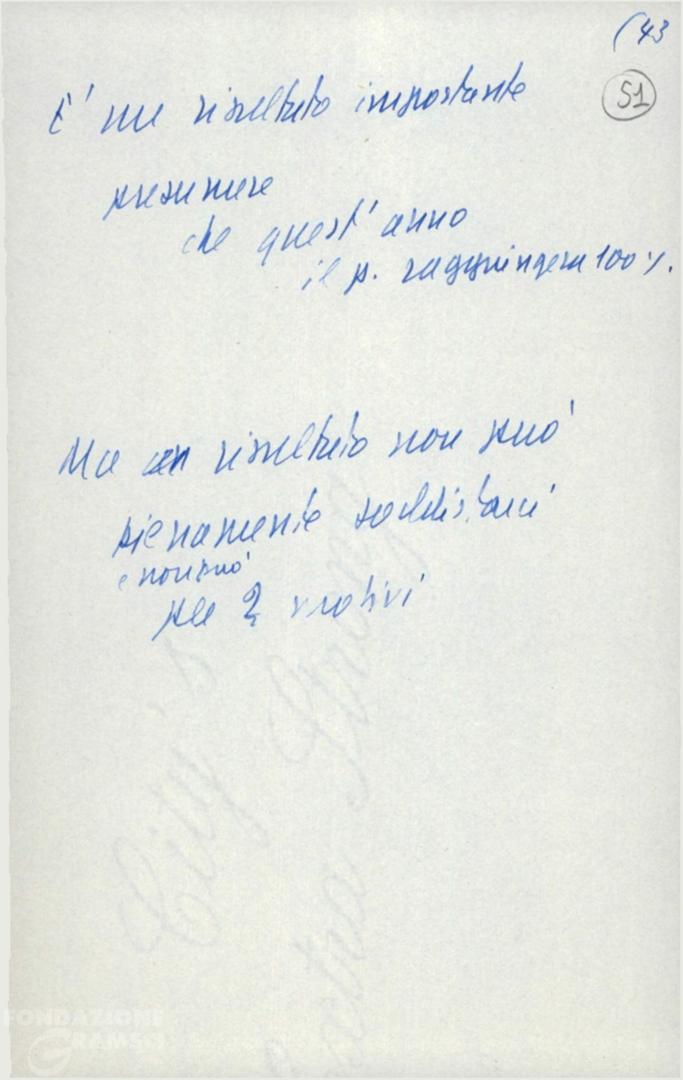 (43
51
E' un risultato importante
presumere
che quest'anno
il p. raggiungerà 100%.
Ma un risultato non può
pienamente soddisfarci
e non può
per 2 motivi
City's
Extra Strong
FONDAZIONE
GRAMSCI